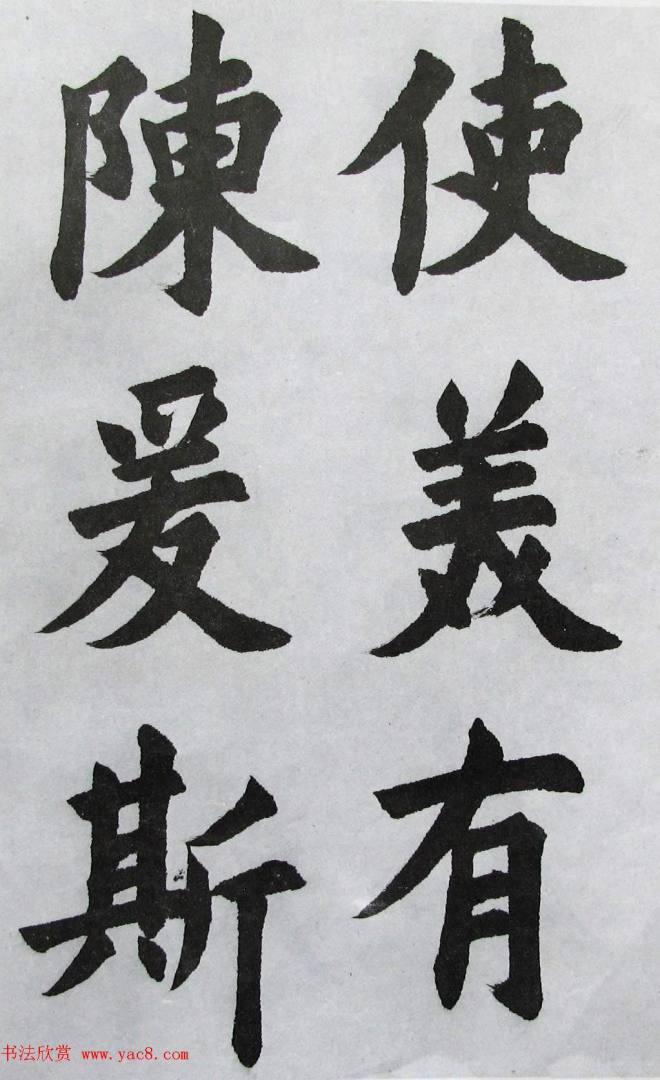 使美有
陳爰斯
书法欣赏 www.yac8.com